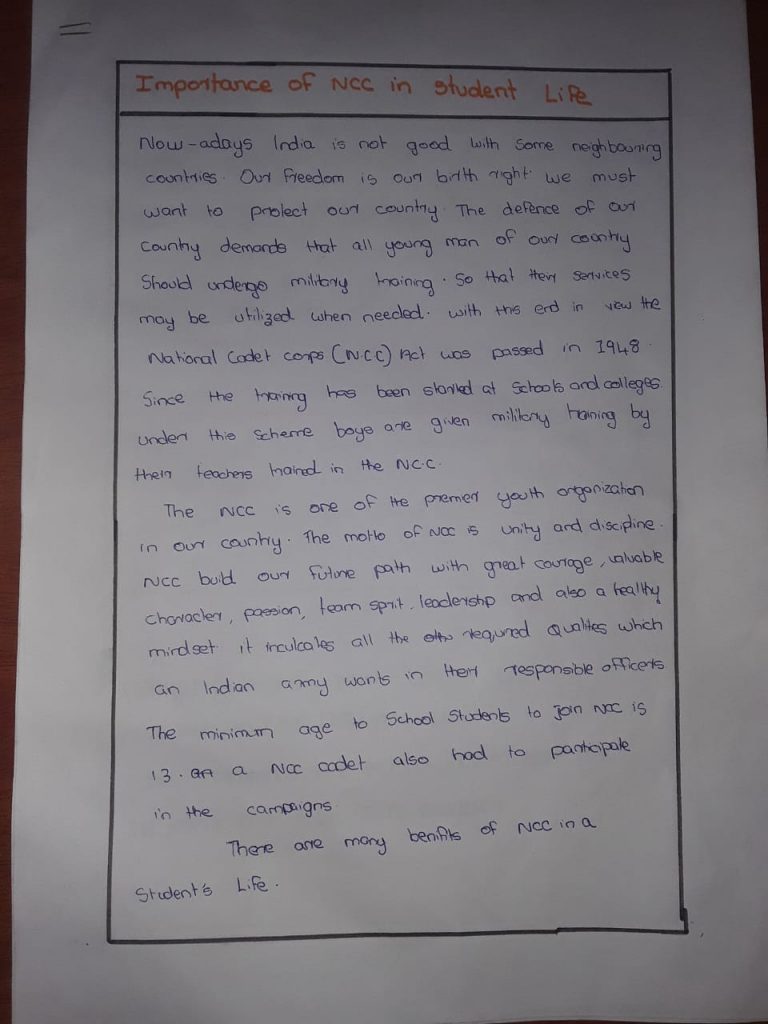 Importance of NCC in Student Life
Now-adays India is not good with some neighbouring
countries. Our Freedom is our birth right. we must
want to protect our country. The defence of our
country demands that all young man of our country
Should undergo military training. So that their services
may be utilized when needed. with this end in view the
National Cadet corps (N.C.C) Act was passed in 1948
Since the training has been started at Schools and colleges.
under this scheme boys are given military training by
their teachers trained in the NC.C.
The NCC is one of the premier youth organization
in our country. The motto of NCC is unity and discipline.
NCC build our future path with great courage, valuable
character, passion, team sprit, leadership and also a healthy
mindset it inculcates all the required Qualites which
an Indian army wants in their responsible officers
The minimum age to School Students to join NCC is
13. a NCC cadet also had to participate
in the campaigns.
There are many benifits of NCC in a
Student's Life.